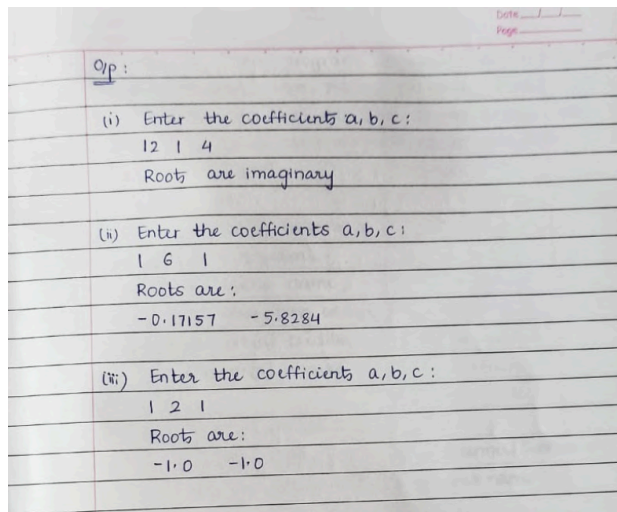 Date
Page
O/p :
(i) Enter the coefficients a, b, c :
12 1 4
Roots are imaginary
(ii) Enter the coefficients a, b, c :
1 6 1
Roots are :
-0.17157 -5.8284
(iii) Enter the coefficients a, b, c :
1 2 1
Roots are :
-1.0 -1.0